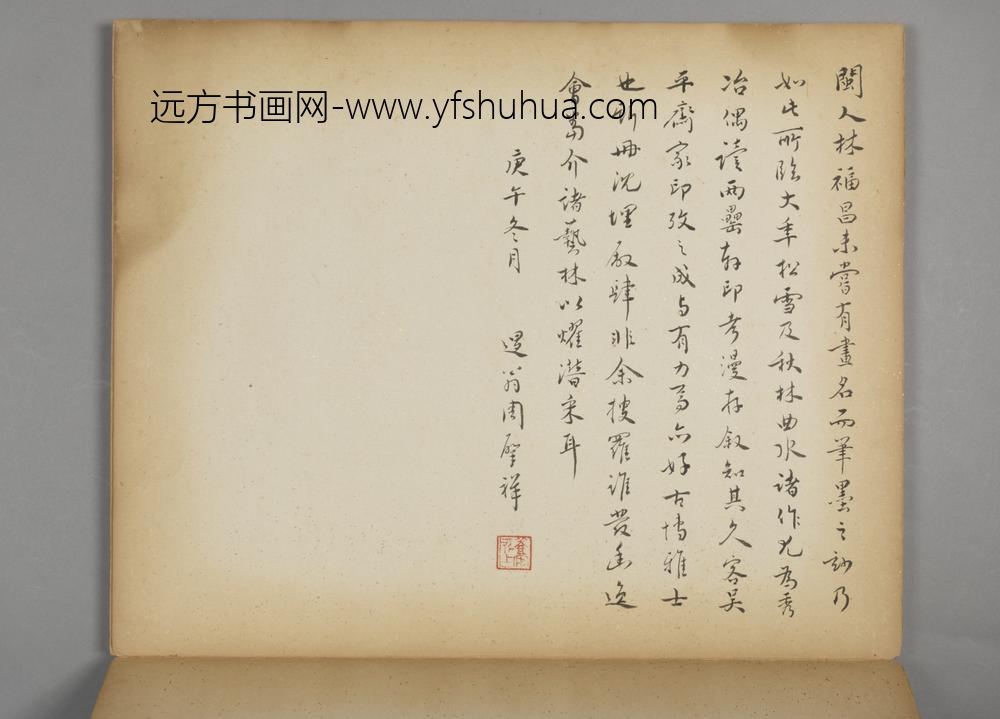 闽人林福昌未嘗有畫名而筆墨之妙乃
如此所臨大年松雪及秋林曲水諸作尤為秀
冶偶讀兩罍軒印考漫存叙知其久客吴
平齋家印攷之成与有力焉亦好古博雅士
也斯冊沈埋廠肆非余搜羅誰發幽逸
會當介諸藝林以耀潜采耳
庚午冬月 退翁周肇祥
远方书画网-www.yfshuhua.com